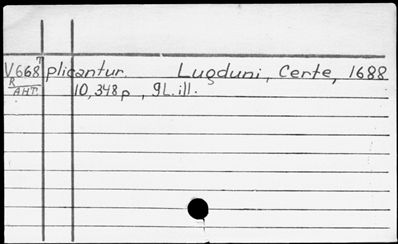 V668 plicantur. Lugduni, Certe, 1688
R
ANT. 10,348p, 9L.ill.